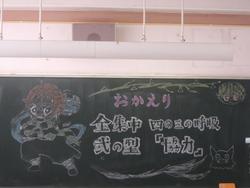 おかえり
全集中 四の三の呼吸
弐の型『協力』